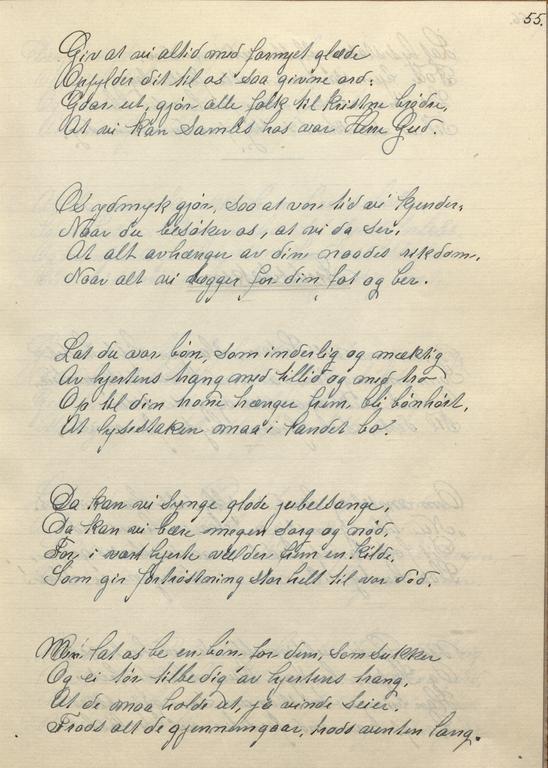 55.
Giv at vi altid med fornyet glæde
Opfylder dit til os saa givine ord.
Gaar ut, gjør alle folk til kristne brødre,
At vi kan samles hos vor Herre Gud.
Os ydmyk gjør, saa at vor tid vi kjender,
Naar du besøker os, at vi da ser,
At alt avhænger av din naades rikdom,
Naar alt vi lægger for din fot og ber.
Lat du vor bøn, som inderlig og mæktig
Av hjertens trang med tillid og med tro
Op til din trone trænger frem, bli bønhørt,
At lysestaken maa i landet bo.
Da kan vi synge glade jubelsange,
Da kan vi bære megen sorg og nød,
For i vort hjerte vælder frem en kilde,
Som gir fortrøstning stor helt til vor død.
Men lat os be en bøn for dem, som sukker
Og ei tør tilbe dig av hjertens trang,
At de maa holde ut, ja vinde seier,
Trods alt de gjennemgaar, trods venten lang.